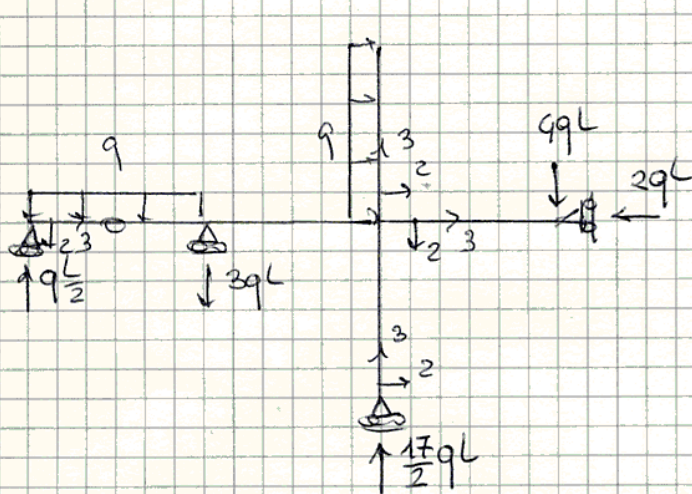 q
q
3
2
4qL
2qL
2 3
q L/2
3qL
2 3
3
2
17/2 qL